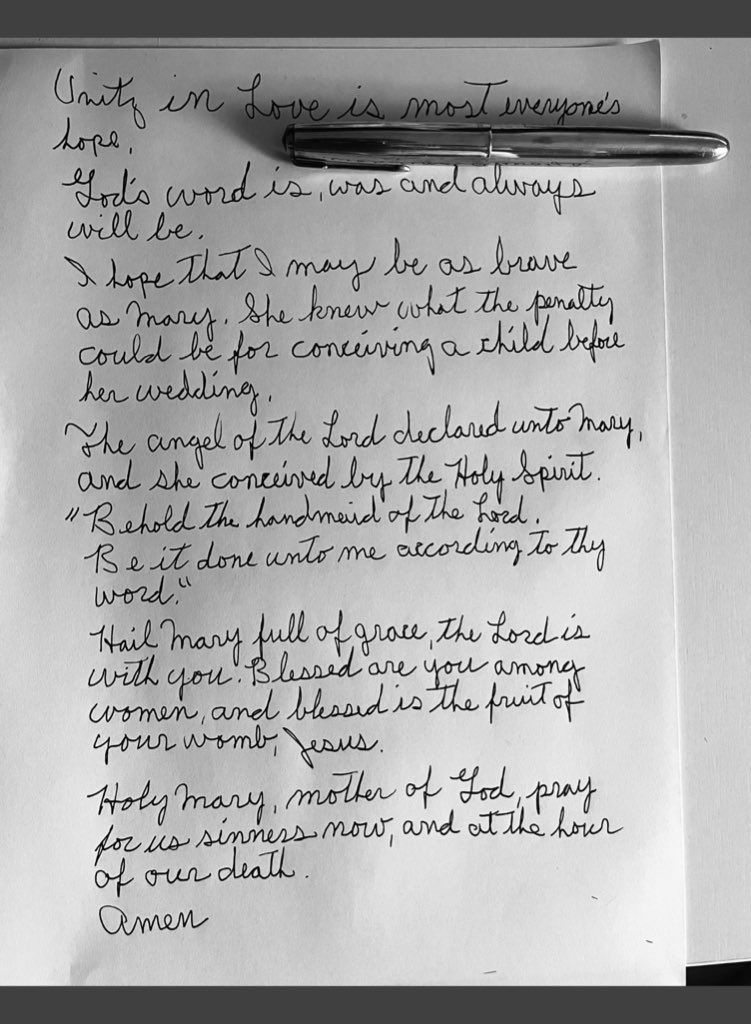 Unity in Love is most everyone's
hope.
God's word is, was and always
will be.
I hope that I may be as brave
as Mary. She knew what the penalty
could be for conceiving a child before
her wedding.
The angel of the Lord declared unto Mary,
and she conceived by the Holy Spirit.
"Behold the handmaid of the Lord.
Be it done unto me according to thy
word."
Hail Mary full of grace, the Lord is
with you. Blessed are you among
women, and blessed is the fruit of
your womb, Jesus.
Holy Mary, mother of God, pray
for us sinners now, and at the hour
of our death.
Amen